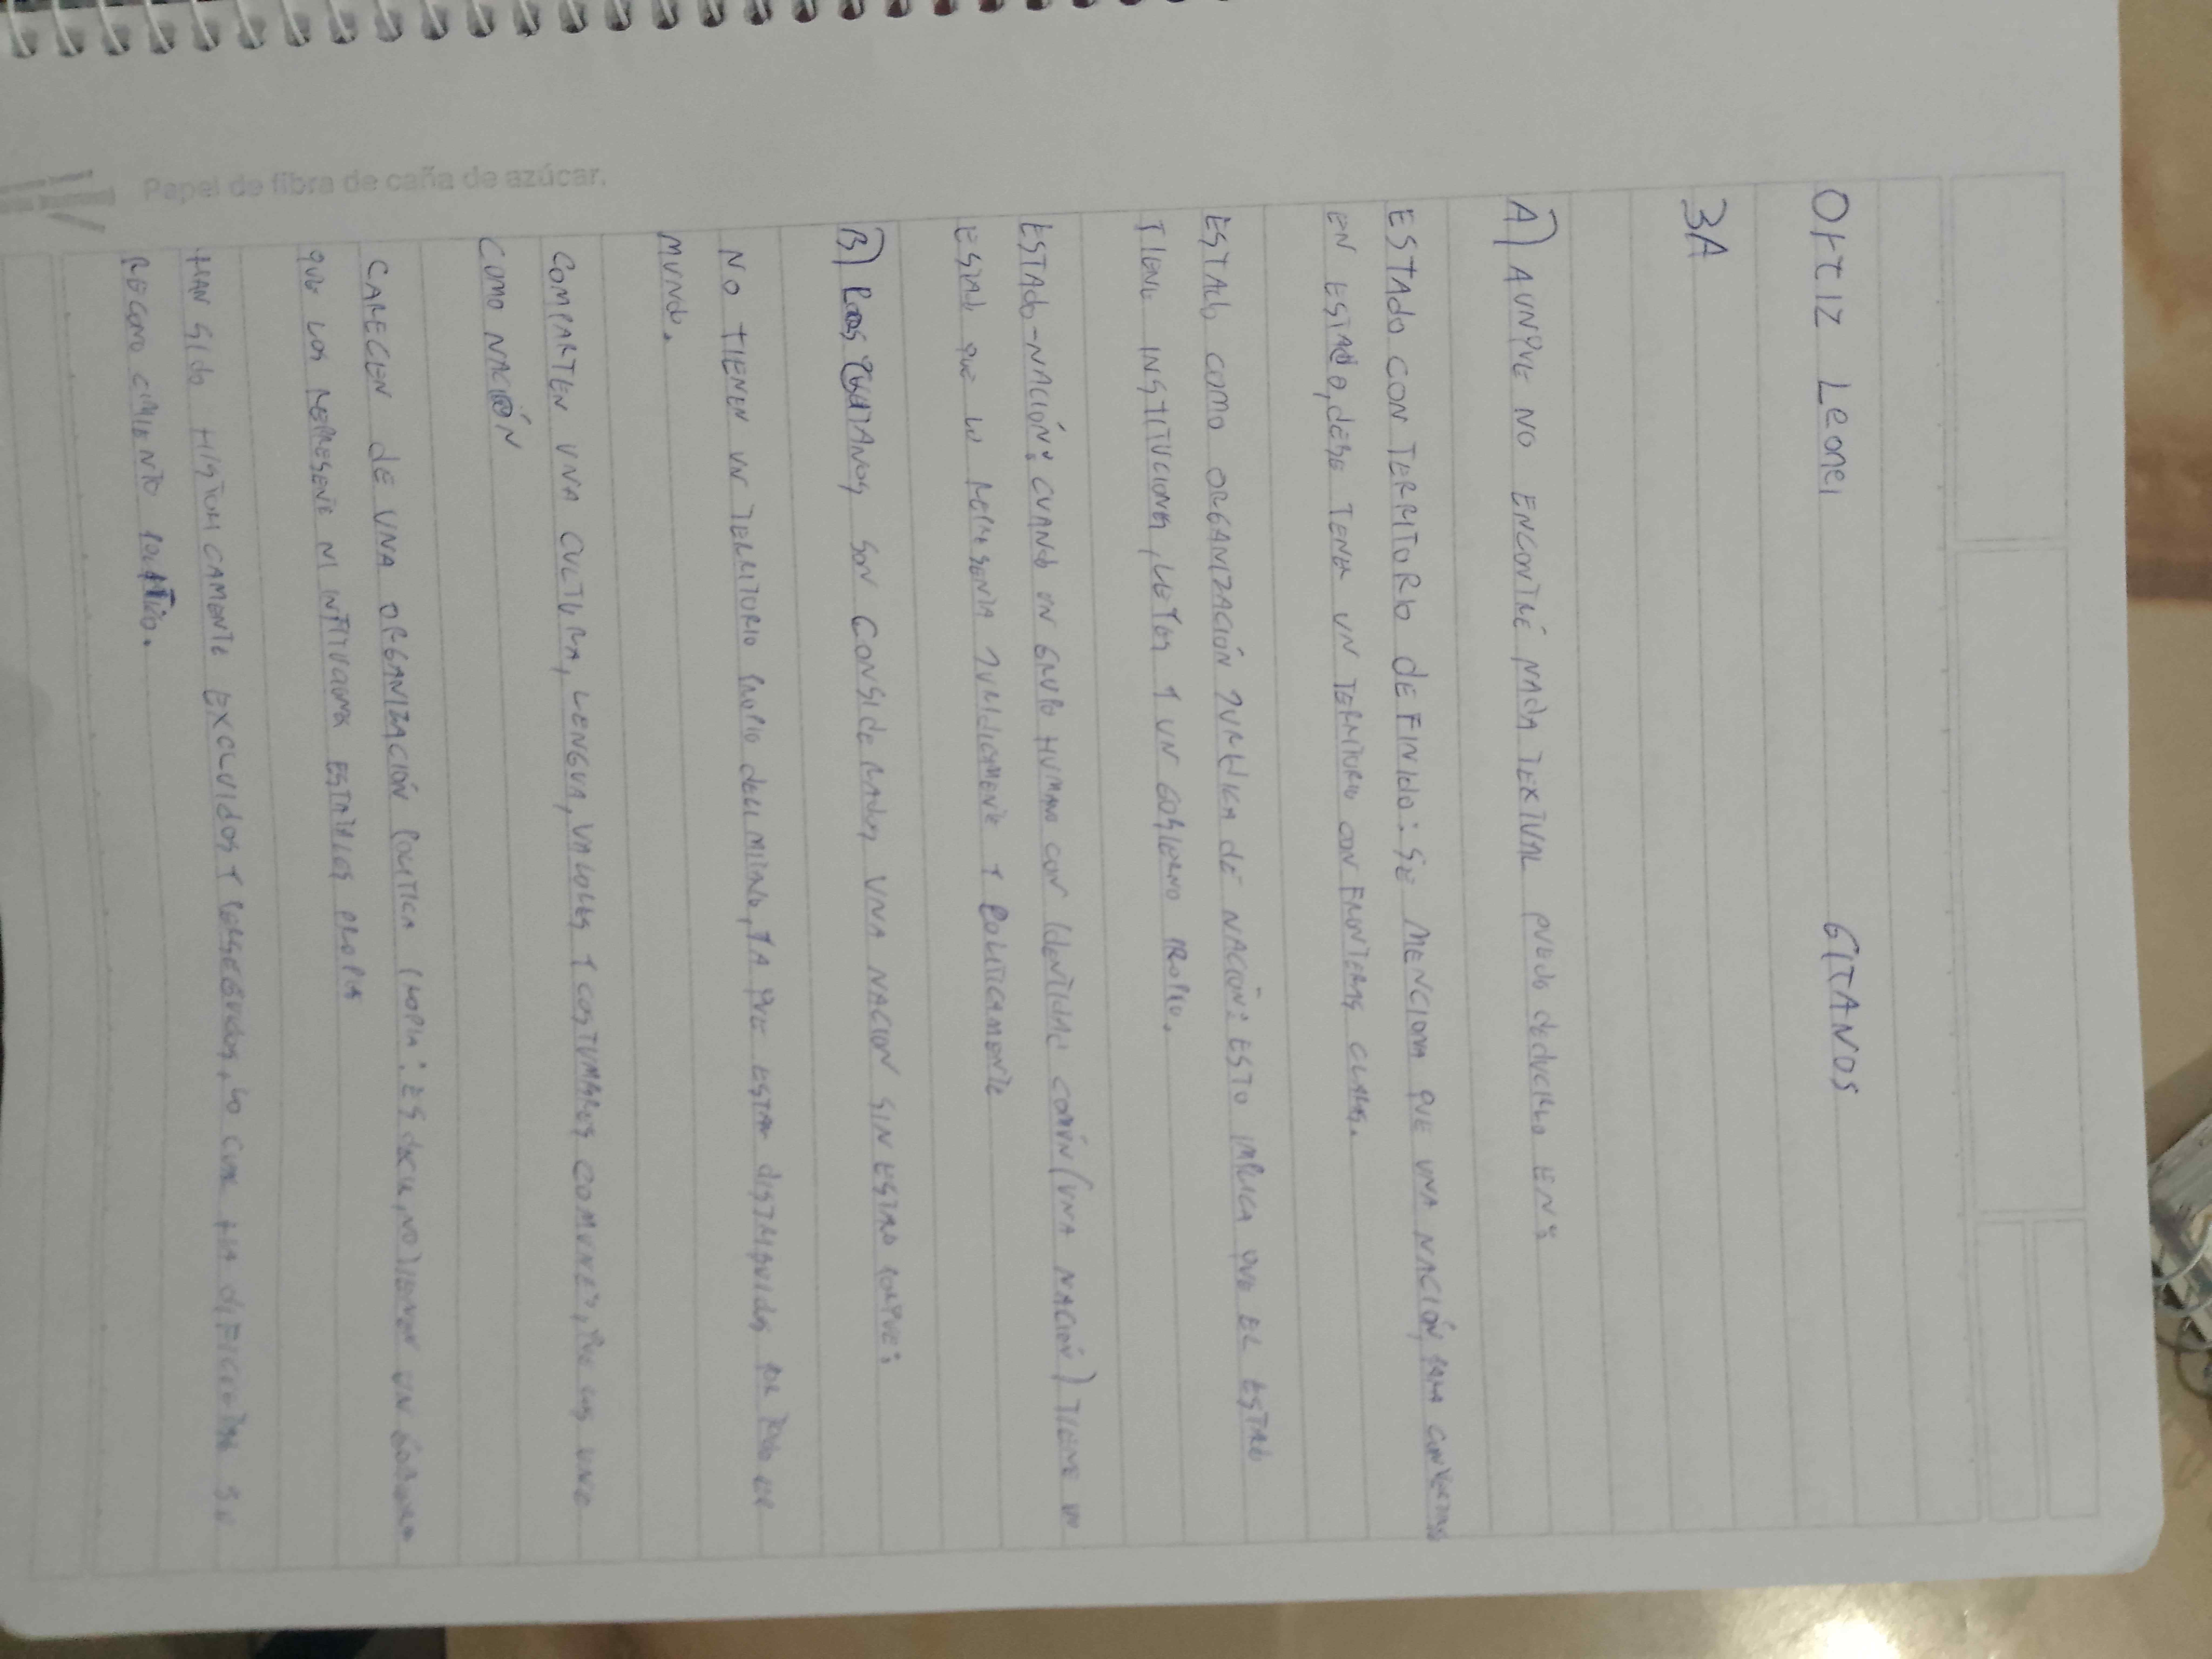 Ortiz Leonel GITANOS
3A
A) AUNQUE NO ENCONTRÉ NADA TEXTUAL PUEDO DEDUCIRLO EN:
ESTADO CON TERRITORIO DEFINIDO: SE MENCIONA QUE UNA NACIÓN, PARA CONVERTIRSE
EN ESTADO, DEBE TENER UN TERRITORIO CON FRONTERAS CLARAS.
ESTADO COMO ORGANIZACIÓN JURIDICA DE NACIÓN: ESTO IMPLICA QUE EL ESTADO
TIENE INSTITUCIONES, LEYES Y UN GOBIERNO PROPIO.
ESTADO-NACIÓN: CUANDO UN GRUPO HUMANO CON IDENTIDAD COMÚN (UNA NACIÓN) TIENE UN
ESTADO QUE LO REPRESENTA JURIDICAMENTE Y POLITICAMENTE
B) LOS GITANOS SON CONSIDERADOS UNA NACION SIN ESTADO PORQUE:
NO TIENEN UN TERRITORIO PROPIO DELIMITADO, YA QUE ESTAN DISTRIBUIDOS POR TODO EL
MUNDO.
COMPARTEN UNA CULTURA, LENGUA, VALORES Y COSTUMBRES COMUNES, QUE LOS UNE
COMO NACIÓN
CARECEN DE UNA ORGANIZACIÓN POLITICA PROPIA: ES DECIR, NO TIENEN UN GOBIERNO
QUE LOS REPRESENTE NI INTITUCIONES ESTATALES PROPIAS
HAN SIDO HISTORICAMENTE EXCLUIDOS Y PERSEGUIDOS, LO CUAL HA DIFICULTADO SU
RECONOCIMIENTO POLÍTICO.
Papel de fibra de caña de azúcar.